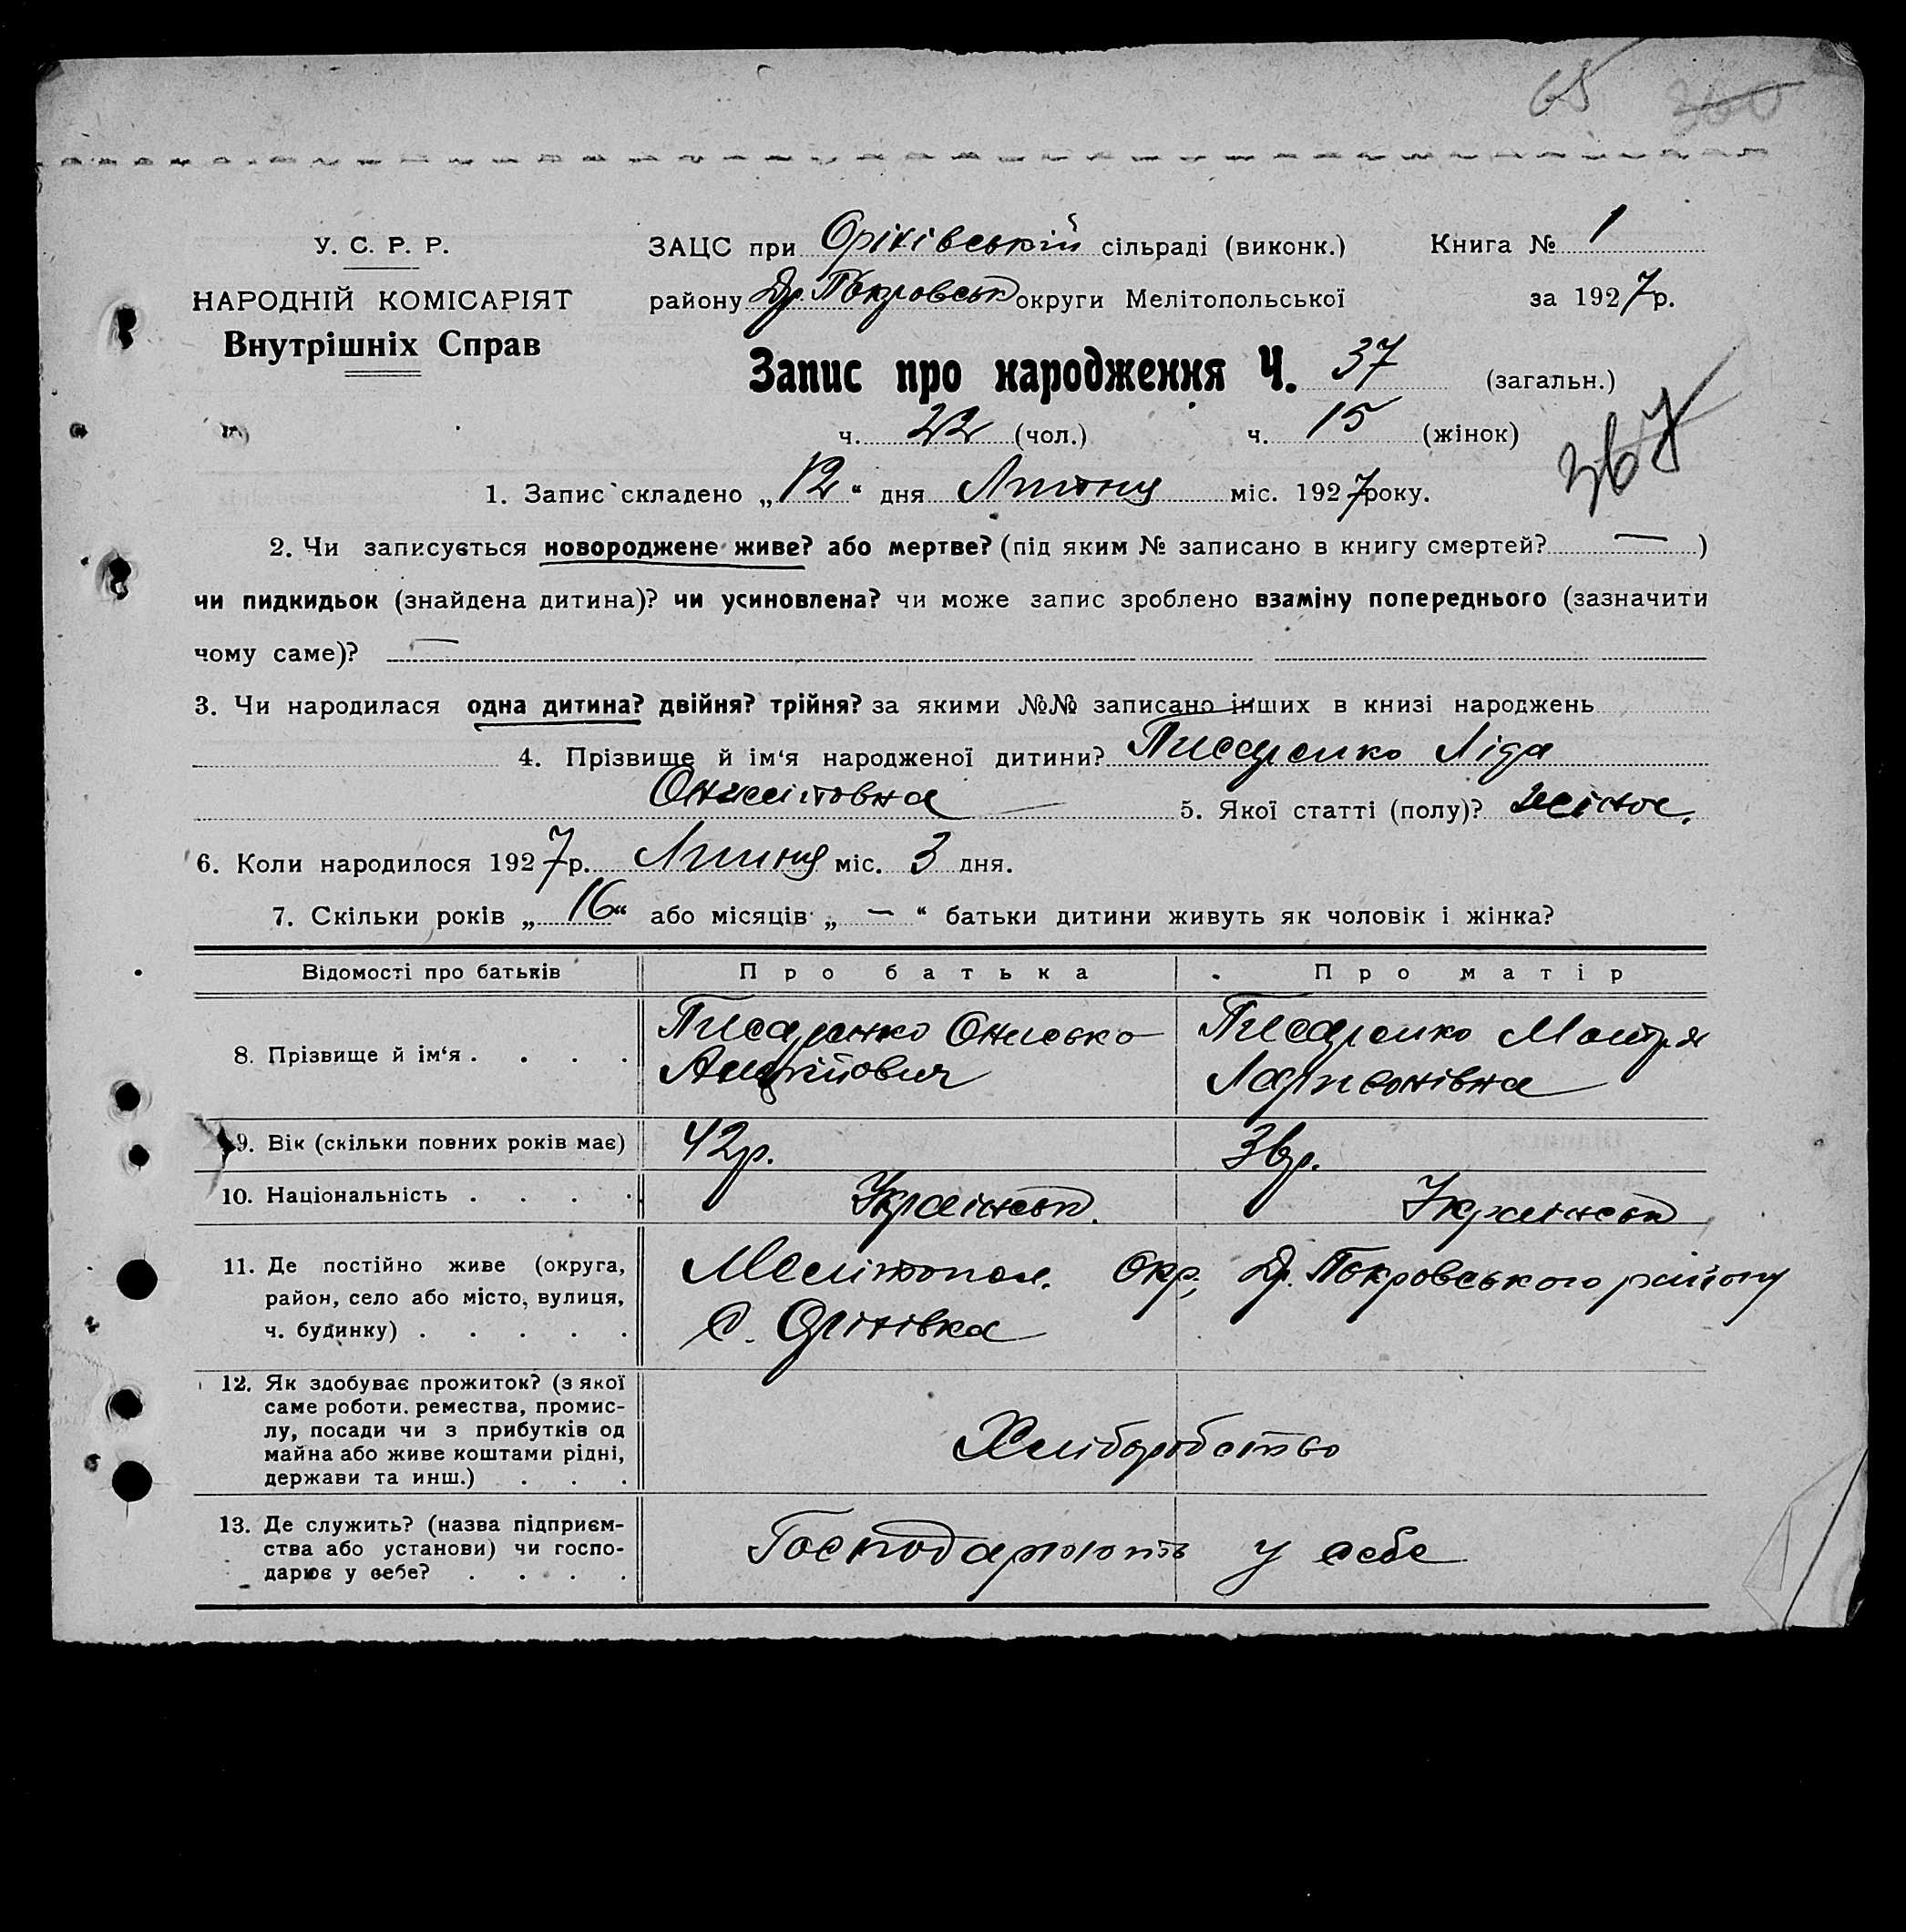 65 300
У. С. Р. Р.
НАРОДНІЙ КОМІСАРІЯТ
Внутрішніх Справ
ЗАЦС при Орінівській сільраді (виконк.) Книга № 1
району Др. Покровськ округи Мелітопольської за 1927 р.
Запис про народження Ч. 37 (загальн.)
ч. 22 (чол.) ч. 15 (жінок)
367
1. Запис складено „12“ дня Липня міс. 1927 року.
2. Чи записується новороджене живе? або мертве? (під яким № записано в книгу смертей? — )
чи пидкидьок (знайдена дитина)? чи усиновлена? чи може запис зроблено взаміну попереднього (зазначити
чому саме)? —
3. Чи народилася одна дитина? двійня? трійня? за якими №№ записано інших в книзі народжень
4. Прізвище й ім‘я народженої дитини? Писаренко Ліда
5. Якої статті (полу)? жіноч.
6. Коли народилося 1927 р. Липня міс. 3 дня.
7. Скільки років „16“ або місяців „ — “ батьки дитини живуть як чоловік і жінка?
Відомості про батьків Про батька Про матір
8. Прізвище й ім‘я . . . . Писаренко Онисько Писаренко Мотря
Ларивонівна
9. Вік (скільки повних років має) 42 р. 36 р.
10. Національність . . . . Українськ. Українськ
11. Де постійно живе (округа, район, село або місто, вулиця, ч. будинку) . . . . . Мелітопол. Окр, Др. Покровського району
с. Орінівка
12. Як здобуває прожиток? (з якої саме роботи. ремества, промислу, посади чи з прибутків од майна або живе коштами рідні, держави та инш.) . . . Хліборобство
13. Де служить? (назва підприємства або установи) чи господарює у себе? . . . . Господарюють у себе